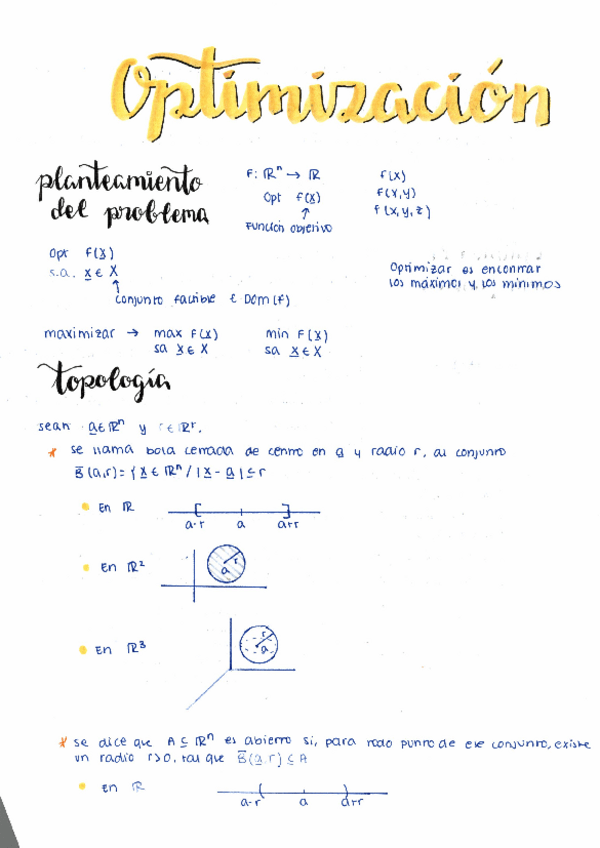 Optimización
planteamiento del problema
F: ℝⁿ → ℝ
Opt f(x)
↑
Función objetivo
f(x)
f(x,y)
f(x,y,z)
Opt f(x)
s.a. x ∈ X
↑
conjunto factible ∈ Dom(f)
Optimizar es encontrar
los máximos y los mínimos
maximizar → max f(x)
sa x ∈ X
min f(x)
sa x ∈ X
topología
sean a∈ℝⁿ y r∈ℝ
* se llama bola cerrada de centro en a y radio r, al conjunto
B̅(a,r) = { x ∈ ℝⁿ / | x - a | ≤ r
• En ℝ
a-r a a+r
• En ℝ²
a r
• En ℝ³
r a
* se dice que A ⊆ ℝⁿ es abierto si, para todo punto de ese conjunto, existe
un radio r>0, tal que B̅(a,r) ⊆ A
• en ℝ
a-r a a+r